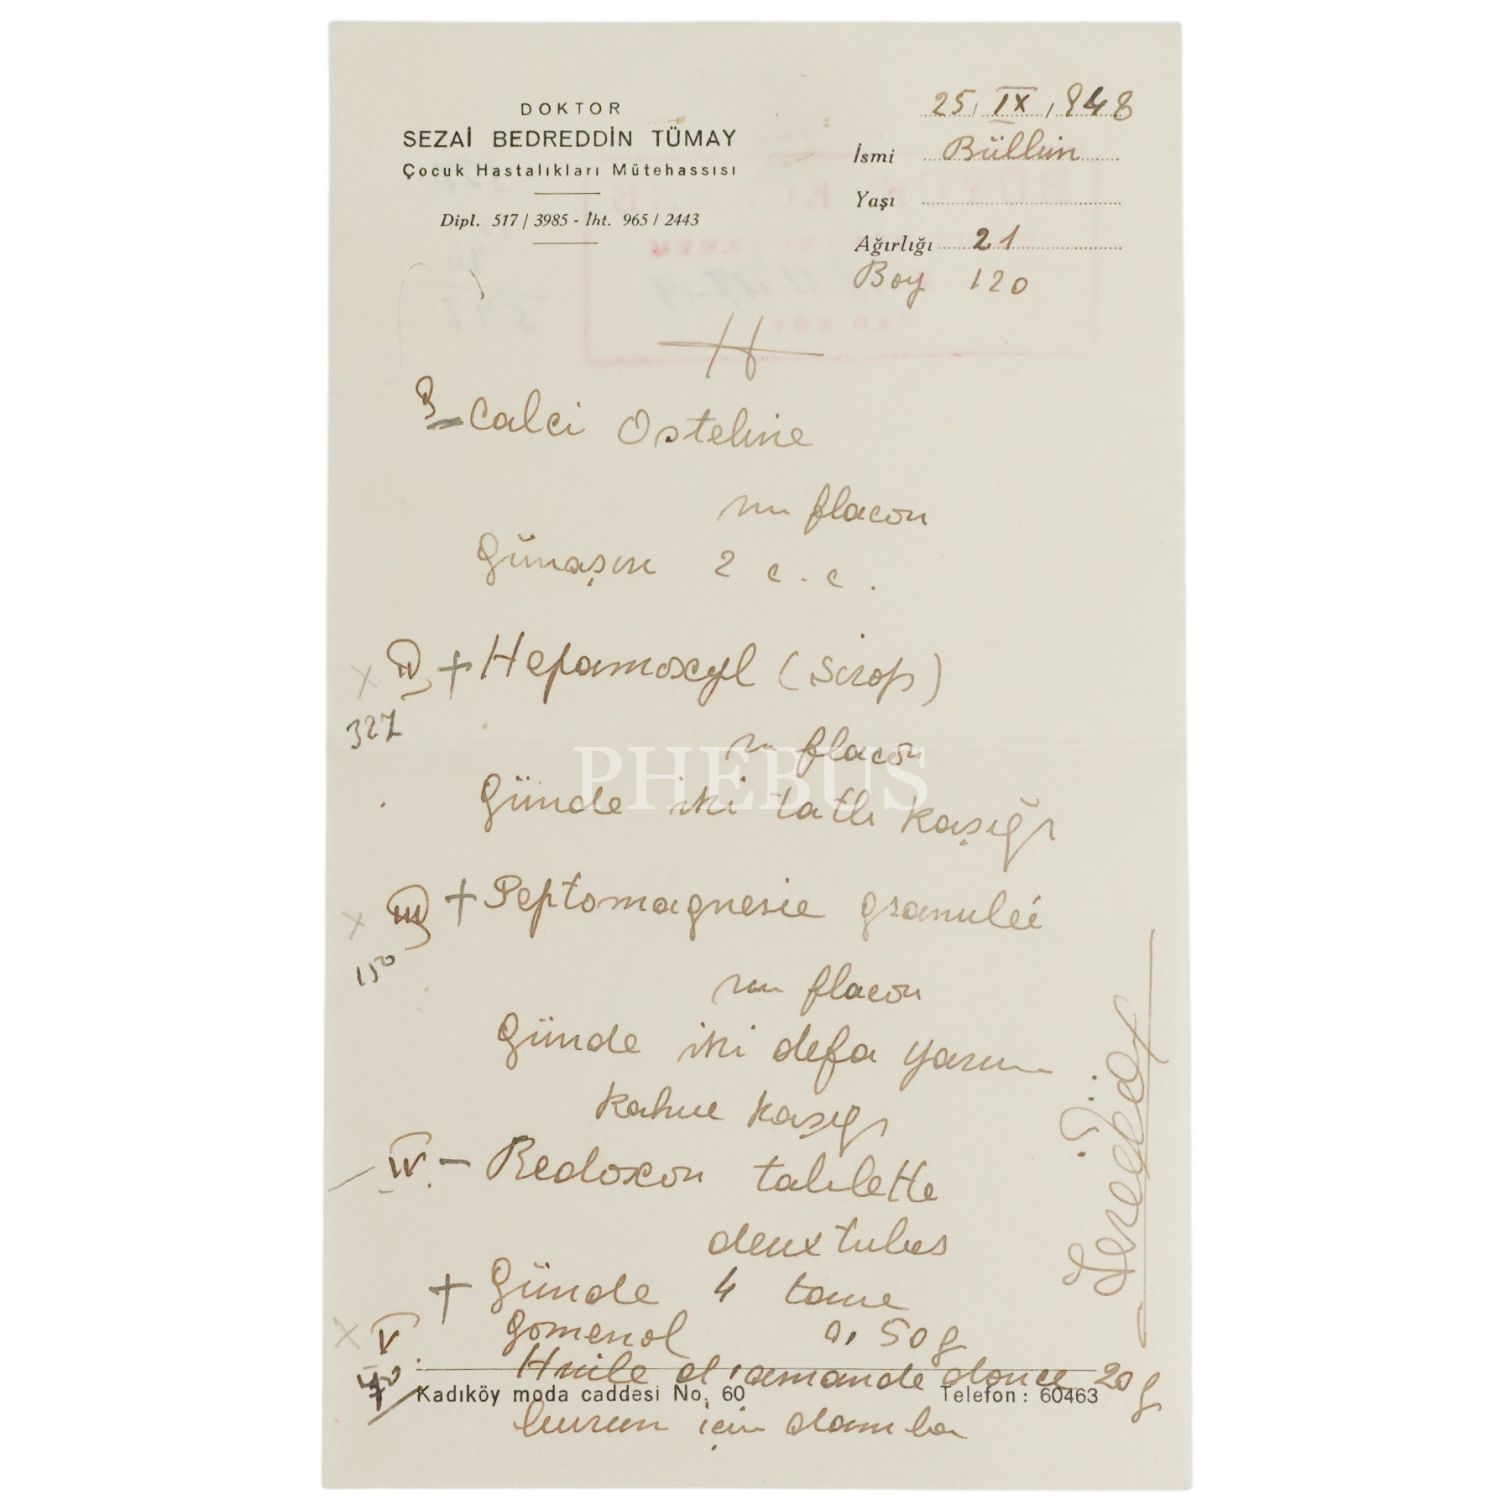 DOKTOR
SEZAİ BEDREDDİN TÜMAY
Çocuk Hastalıkları Mütehassısı
Dipl. 517 / 3985 - İht. 965 / 2443
25, IX, 948
İsmi
Yaşı
Ağırlığı 21
Boy 120
Calci Osteline
un flacon
Günaşırı 2 c.c.
II + Hepamoxyl (Sirop)
327
un flacon
PHEBUS
Günde iki tatlı kaşığı
III + Peptomagnesie granuleé
150
un flacon
Günde iki defa yarım
kahve kaşığı
IV - Redoxon tablette
deux tubes
+ Günde 4 tane
V gomenol 0,50g
Huile d'amande douce 20g
Kadıköy moda caddesi No. 60 Telefon : 60463
burun için damla